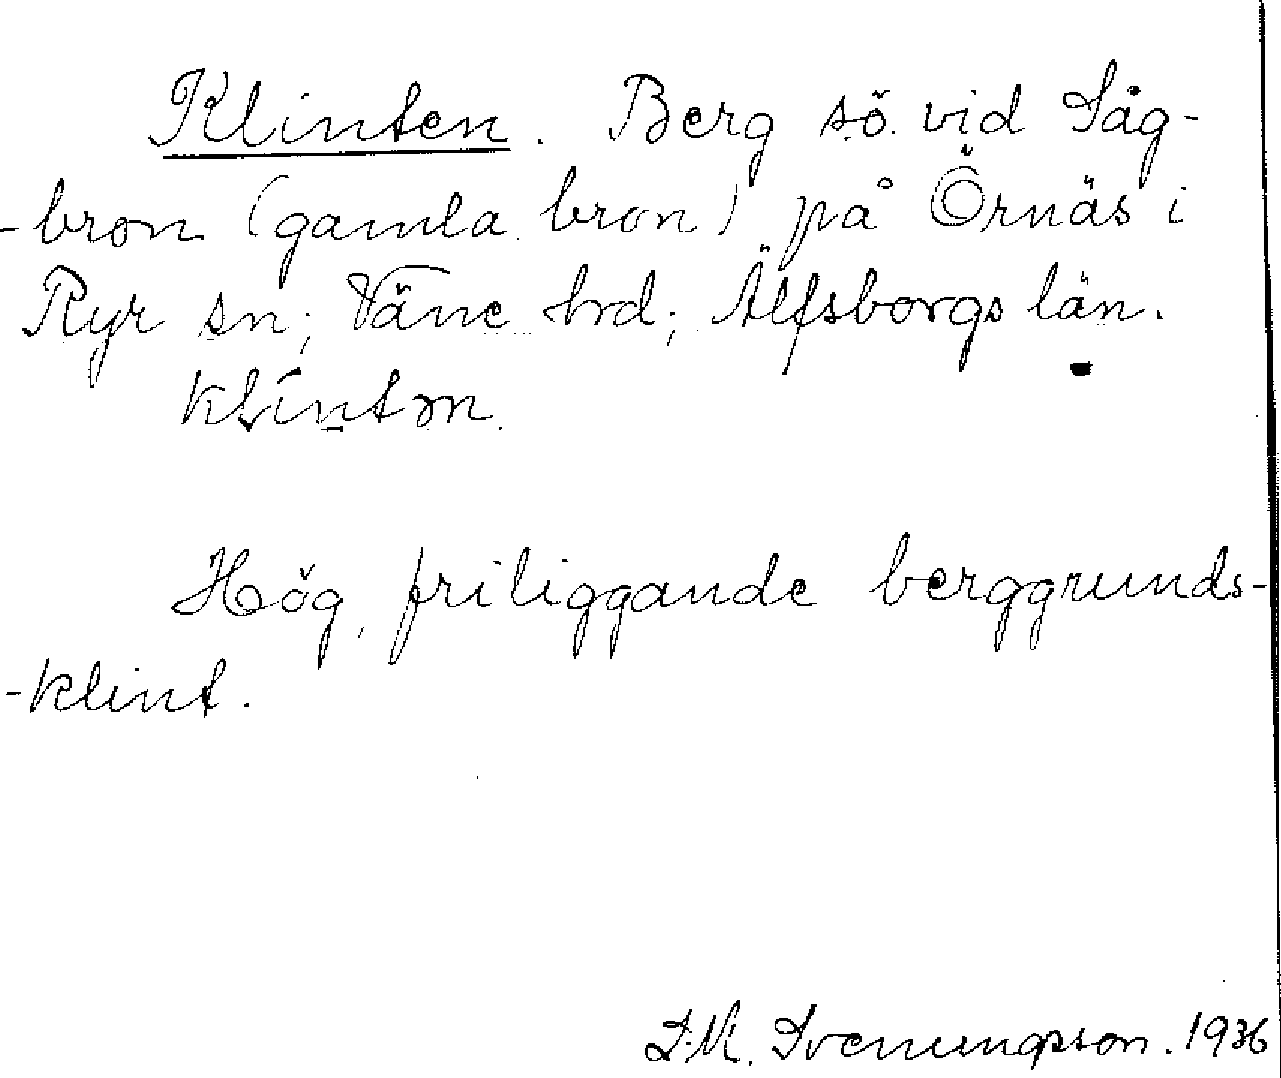 Klinten. Berg sö. vid Såg-
-bron (gamla bron) på Örnäs i
Ryr sn; Väne hrd; Älfsborgs län.
klinton.
Hög, friliggande berggrunds-
-klint.
Svenungsson. 1936